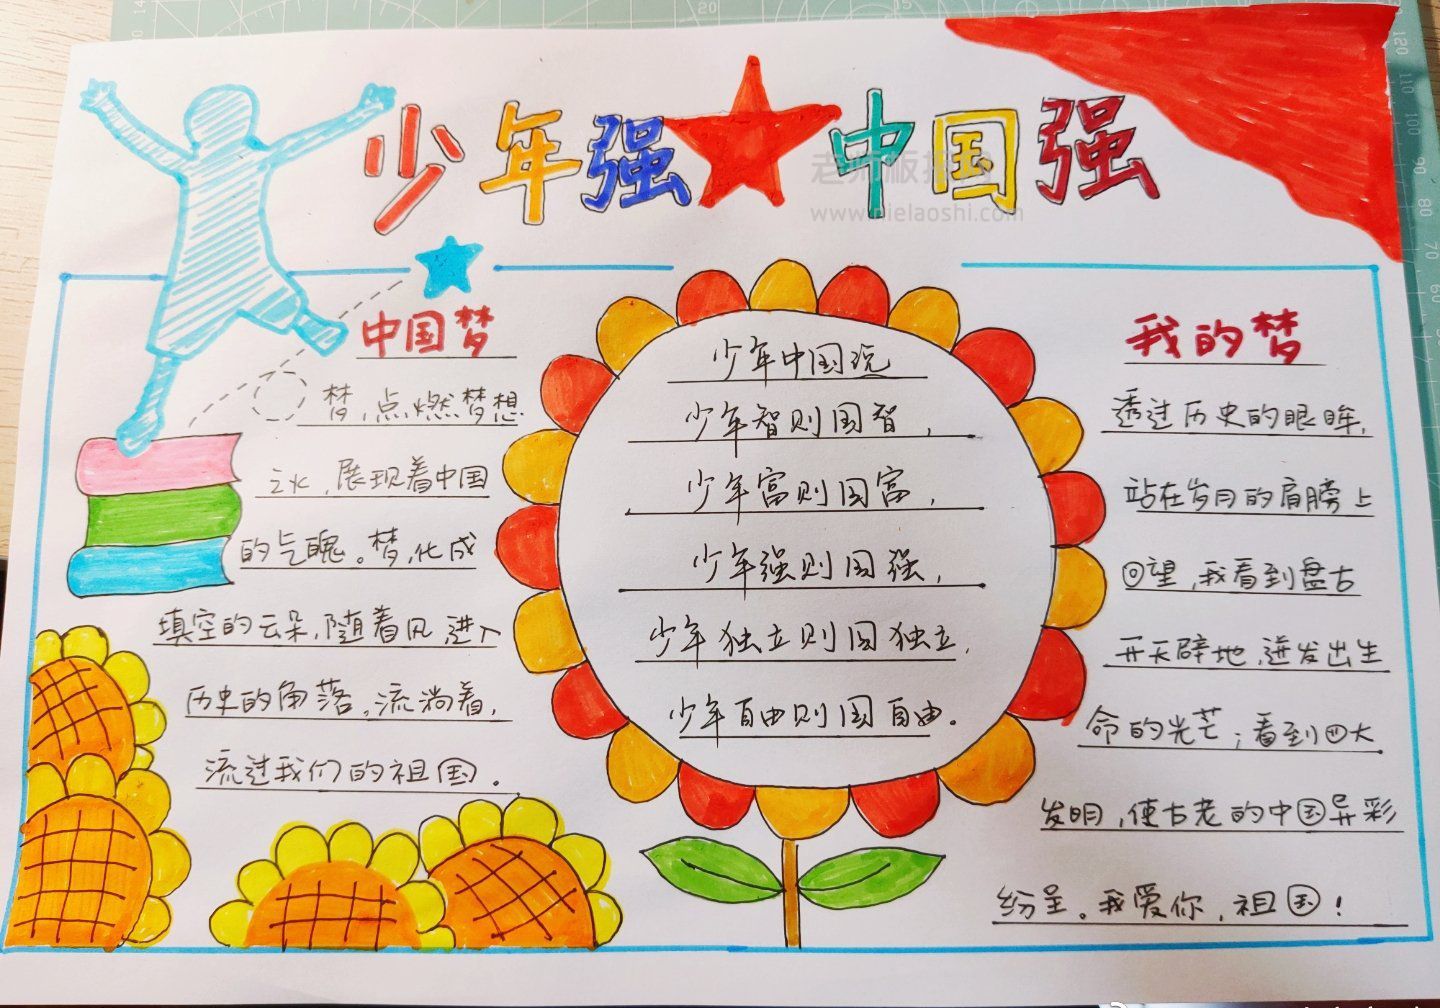 少年强 中国强
老师板报网
www.pielaoshi.com
中国梦
梦,点燃梦想
之火,展现着中国
的气魄。梦,化成
填空的云朵,随着风,进入
历史的角落,流淌着,
流过我们的祖国。
少年中国说
少年智则国智,
少年富则国富,
少年强则国强,
少年独立则国独立,
少年自由则国自由。
我的梦
透过历史的眼眸,
站在岁月的肩膀上
回望,我看到盘古
开天辟地,迸发出生
命的光芒;看到四大
发明,使古老的中国异彩
纷呈。我爱你,祖国!